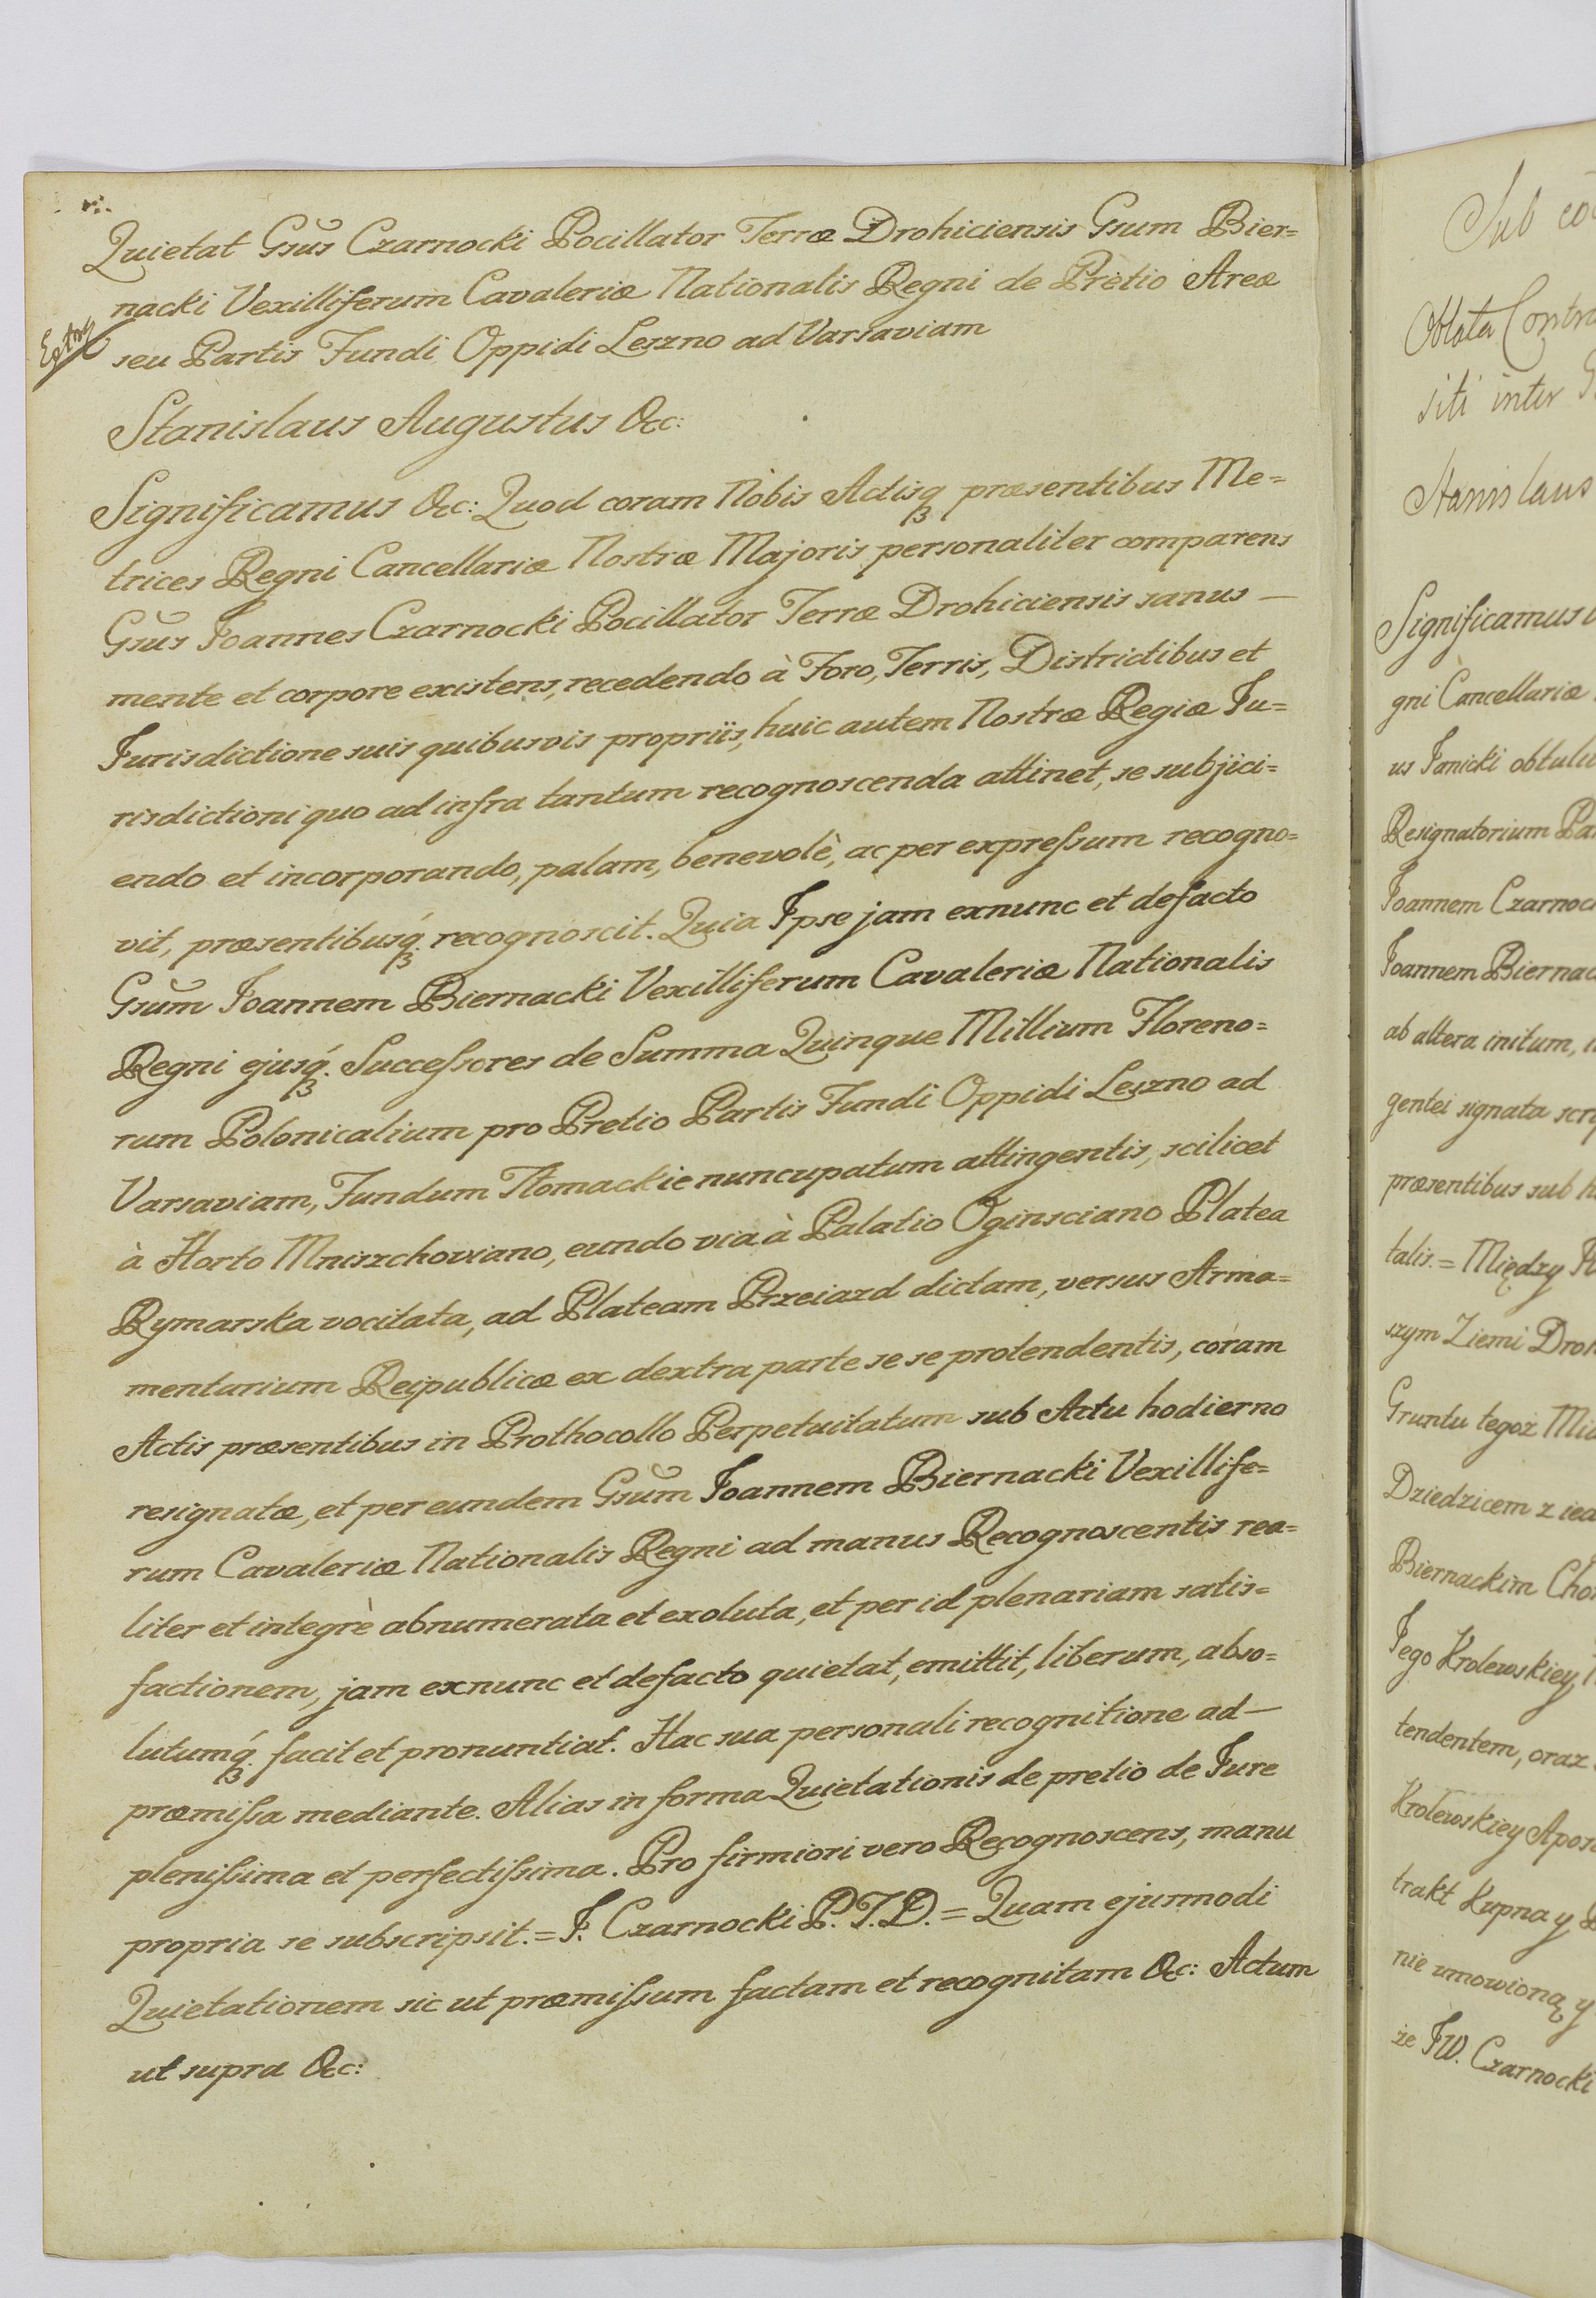 Quietat Gsus Czarnocki Pocillator Terræ Drohiciensis Gsum Bier=
nacki Vexilliferum Cavaleriæ Nationalis Regni de Pretio Areæ
seu Partis Fundi Oppidi Leszno ad Varsaviam
Stanislaus Augustus &c:
Significamus &c: Quod coram Nobis Actisq præsentibus Me=
trices Regni Cancellariæ Nostræ Majoris personaliter comparens
Gsus Joannes Czarnocki Pocillator Terræ Drohiciensis sanus —
mente et corpore existens, recedendo à Foro, Terris, Districtibus et
Jurisdictione suis quibusvis propriis, huic autem Nostræ Regiæ Ju=
risdictioni quo ad infra tantum recognoscenda attinet, se subjici=
endo et incorporando, palam, benevolè, ac per expressum recogno=
vit, præsentibusq. recognoscit. Quia Ipse jam exnunc et defacto
Gsum Joannem Biernacki Vexilliferum Cavaleriæ Nationalis
Regni ejusq. Successores de Summa Quinque Millium Floreno=
rum Polonicalium pro Pretio Partis Fundi Oppidi Leszno ad
Varsaviam, Fundum Tłomackie nuncupatum attingentis, scilicet
à Horto Mniszchoviano, eundo via à Palatio Oginsciano Platea
Rymarska vocitata, ad Plateam Przeiazd dictam, versus Arma=
mentarium Reipublicæ ex dextra parte se se protendentis, coram
Actis præsentibus in Prothocollo Perpetuitatum sub Actu hodierno
resignatæ, et per eundem Gsum Joannem Biernacki Vexillife=
rum Cavaleriæ Nationalis Regni ad manus Recognoscentis rea=
liter et integrè abnumerata et exoluta, et per id plenariam satis=
factionem, jam exnunc et defacto quietat, emittit, liberum, abso=
lutumq. facit et pronuntiat. Hac sua personali recognitione ad —
præmissa mediante. Alias in forma Quietationis de pretio de Jure
plenissima et perfectissima. Pro firmiori vero Recognoscens, manu
propria se subscripsit. = J. Czarnocki P. T. D. = Quam ejusmodi
Quietationem sic ut præmissum factam et recognitam &c: Actum
ut supra &c:
Sub
Oblata
siti inter
Stanislaus
Significamus
gni Cancellariæ
us Janicki
Resignatorium
Joannem
Joannem
ab altera initum,
gentei signata
præsentibus sub
talis. = Między
szym Ziemi
Gruntu tegoż
Dziedzicem z
Biernackim
Jego Krolewskiey
tendentem, oraz
Krolewskiey
trakt Kupna y
nie umowioną y
że JW. Czarnocki